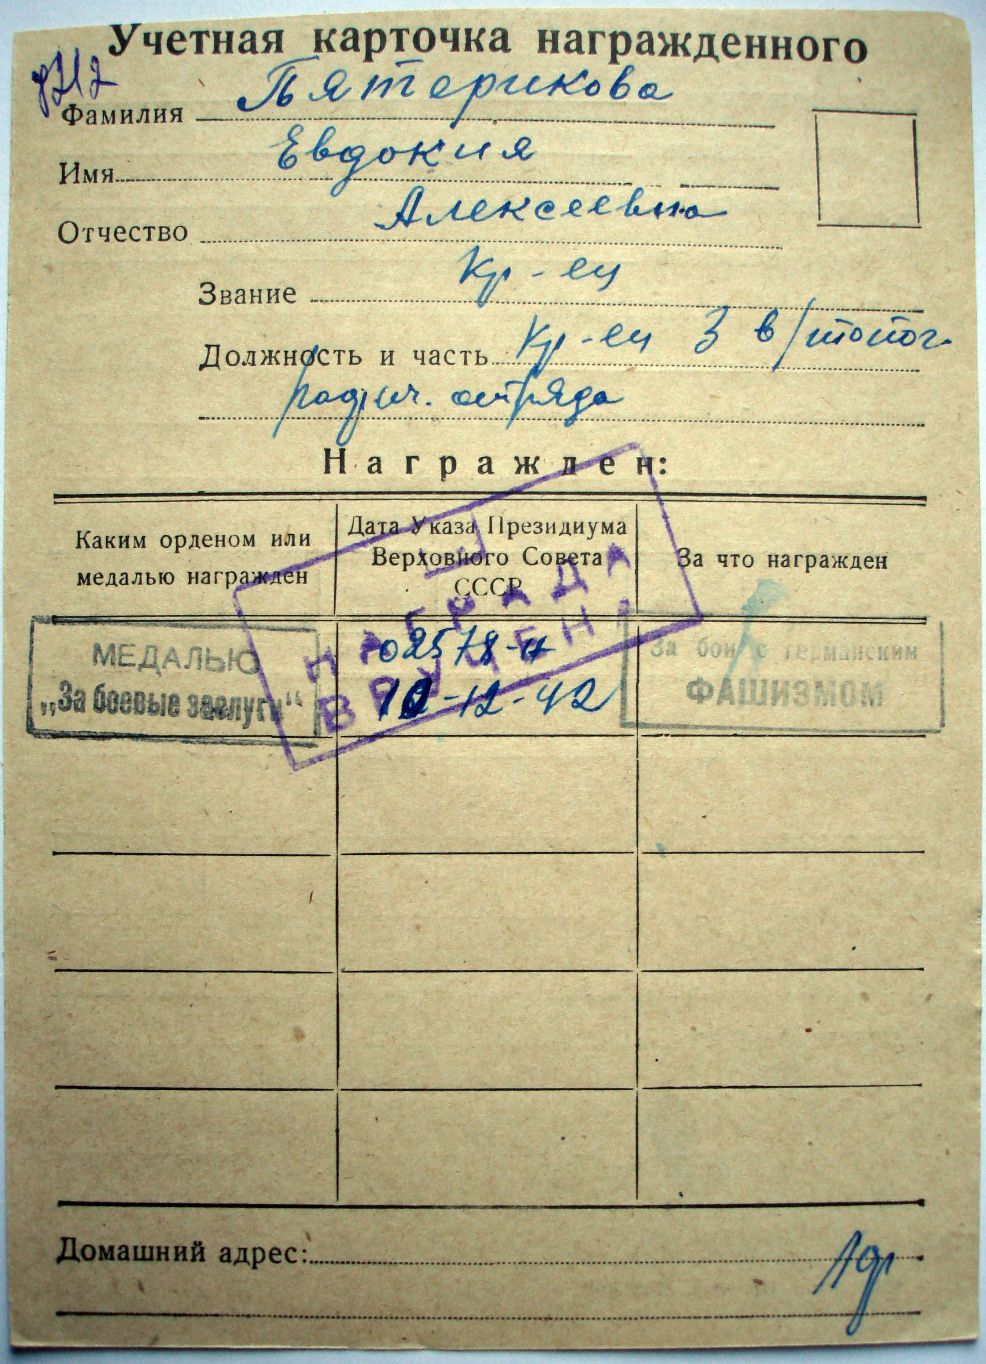 Учетная карточка награжденного
Фамилия Пятерикова
Имя Евдокия
Отчество Алексеевна
Звание Кр-ец
Должность и часть Кр-ец 3 в/топог-
рафич. отряда
Награжден:
Каким орденом или
медалью награжден
Дата Указа Президиума
Верховного Совета
СССР
За что награжден
МЕДАЛЬЮ
„За боевые заслуги“
02578-н
10-12-42
За бои с германским
ФАШИЗМОМ
НАГРАДА
ВРУЧЕНА
Домашний адрес: